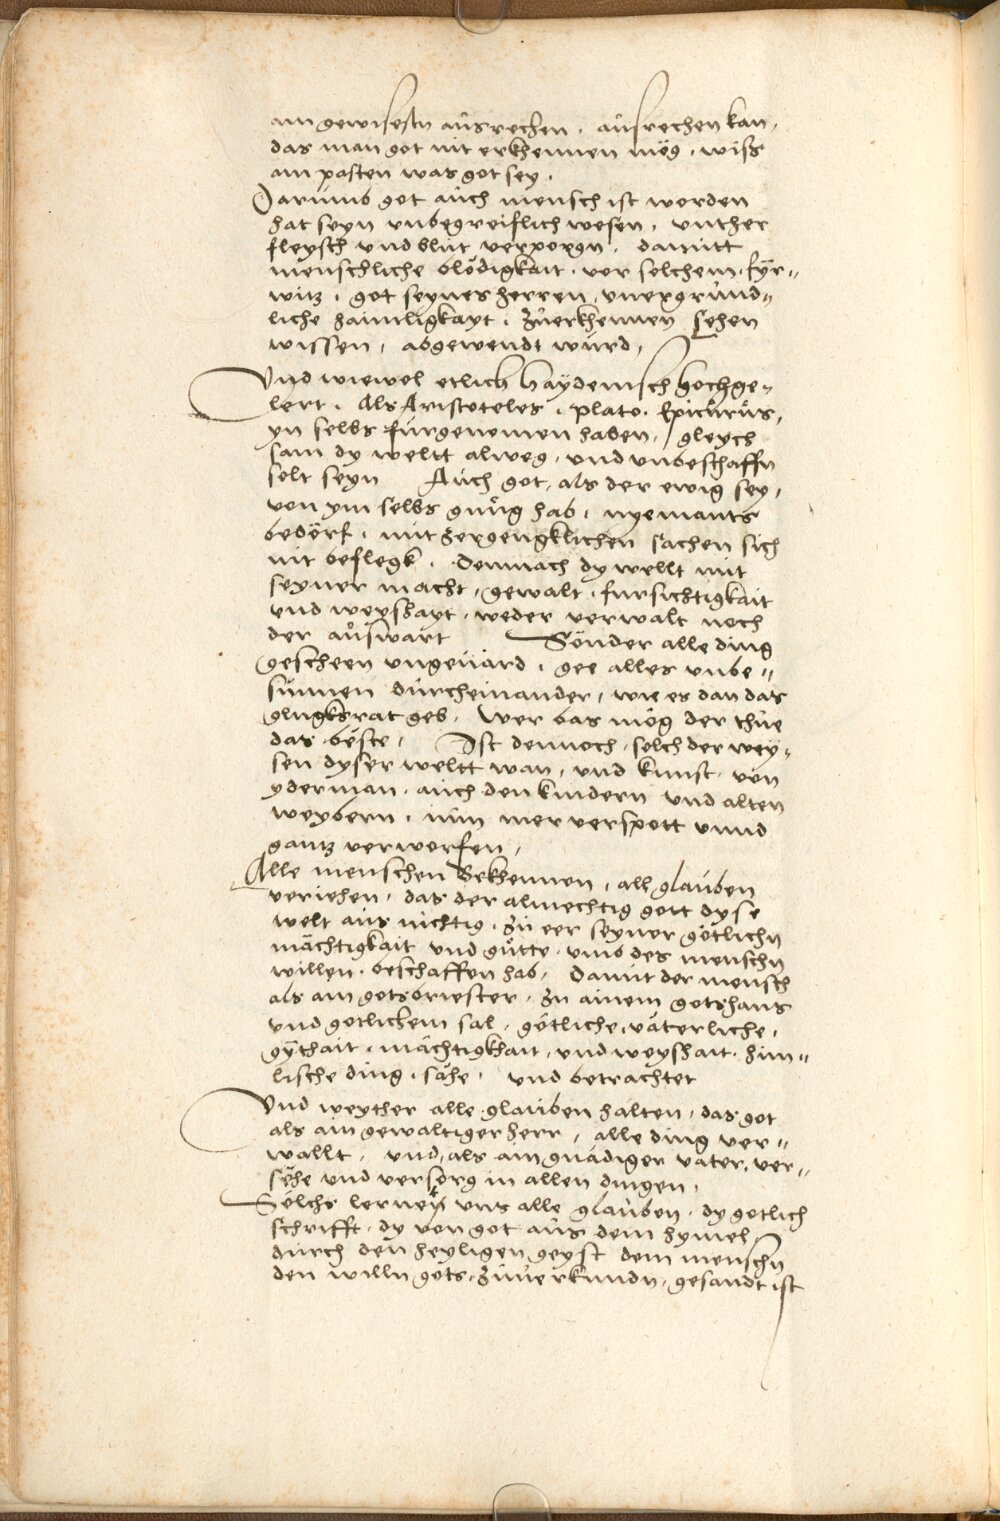 am gewisesten ausrechen, ausrechen kan,
das man got nit erkhennen mög, wiss
am pasten was got sey.
Darumb got auch mensch ist worden
hat seyn unbegreiflich wesen, unther
fleysch und blut verporgn, damitt
menschliche blödigkait, vor solchem, für„
witz, got seynes herren, unergründ„
liche haimligkayt, zuerkhennen sehen
wissen, abgewendt würd,
Und wiewol etlich haydenisch hochge„
lert, als Aristoteles, plato, Epicurus,
yn selbs fürgenomen haben, gleych
sam dy weltt alweg, und unbeschaffn
solt seyn Auch got, als der ewig sey,
von ym selbs gnüg hab, nyemants
bedörf, mit zergengklichen sachen sich
nit beflegk, Demnach dy wellt mit
seyner macht, gewalt, fursichtigkait
und weyshayt, weder verwalt noch
der auswart Sonder alle ding
gescheen ungeuärd, gee alles unbe„
sunnen durcheinander, wie es dan das
glugksrat geb, Wer bas mög der thue
das beste, Ist dennoch, solch der wey„
sen dyser weltt wan, und kunst, von
yderman, auch den kindern und alten
weybern, nun mer verspott unnd
gantz verworfen,
Alle menschen bekhennen, all glauben
veriehen, das der almechtig gott dyse
welt aus nichtig, zu eer seyner götlichn
mächtigkait und gütte, umb des menschn
willen, beschaffen hab, Damit der mensch
als am gots briester, zu ainem gotshaus
und gotlichem sal, götliche, väterliche,
gythait, mächtigkhait, und weyshait, him„
lische ding, sähe, und betrachtet
Und weyther alle glauben halten, das got
als ain gewaltiger herr, alle ding ver„
wallt, und, als ain gnädiger vater, ver„
sehe und versorg in allen dingen,
Sölchs lernen uns alle glauben, dy gotlich
schrifft, dy von got aus dem hymel,
durch den heyligen geyst dem menschn
den willn gots, zuuerkundn, gesandt ist